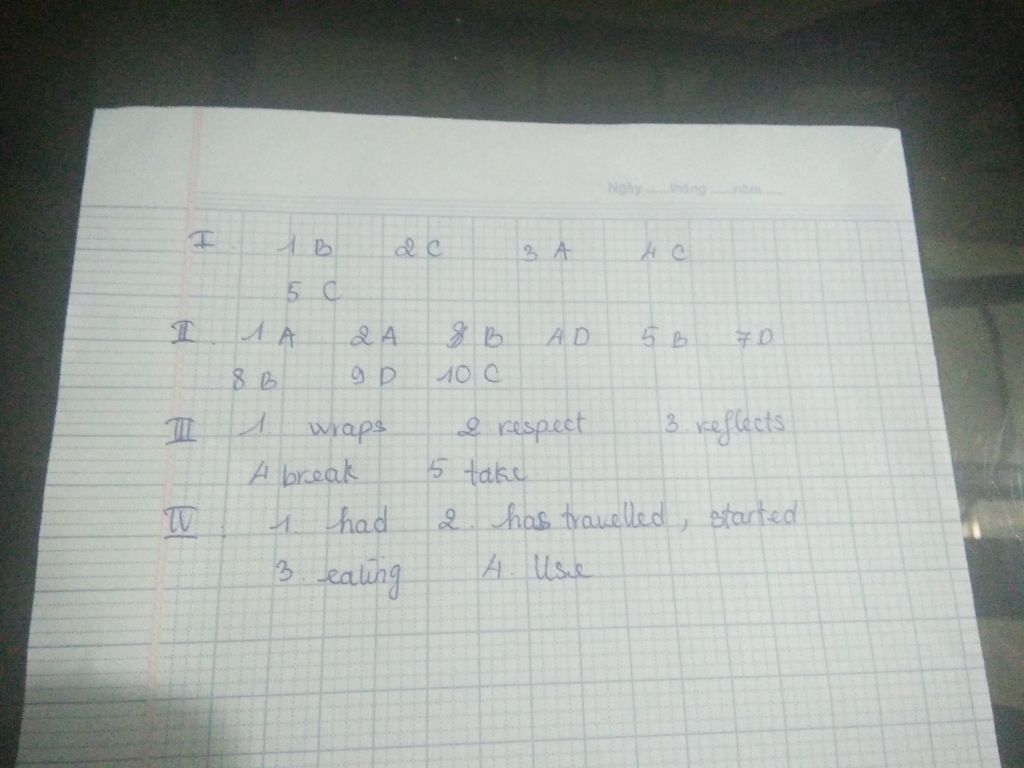 Ngày ......tháng ......năm ......
I. 1 B 2 C 3 A 4 C
5 C
II. 1 A 2 A 3 B 4 D 5 B 7 D
8 B 9 D 10 C
III 1. wraps 2 respect 3. reflects
4 break 5 take
IV. 1. had 2. has travelled, started
3. eating 4. Use